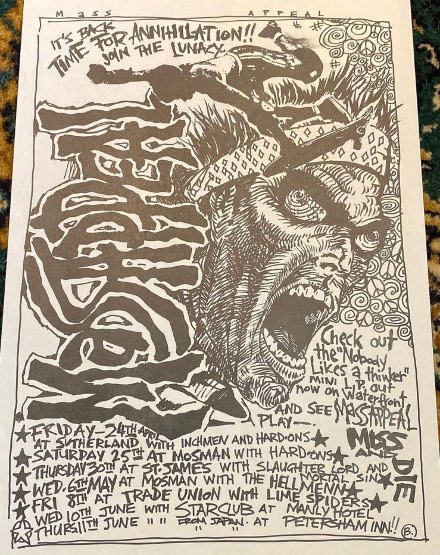 MASS APPEAL
IT'S BACK
TIME FOR ANNIHILATION!!
JOIN THE LUNACY.
MASSAPPEAL
Check out
the "Nobody
Likes a thinker"
MINI L.P. out
now on Waterfront
AND SEE MASSAPPEAL
PLAY—.
MISS
AND
DIE
FRIDAY - 24TH APR
AT SUTHERLAND WITH INCHMEN AND HARD-ONS
SATURDAY 25TH AT MOSMAN WITH HARD-ONS
THURSDAY 30TH AT ST. JAMES WITH SLAUGHTER LORD, AND
MORTAL SIN
WED. 6TH MAY AT MOSMAN WITH THE HELLMENN
FRI 8TH AT TRADE UNION WITH LIME SPIDERS
WED 10TH JUNE WITH STARCLUB AT MANLY HOTEL
THURS 11TH JUNE " " FROM JAPAN. AT PETERSHAM INN!!
B.